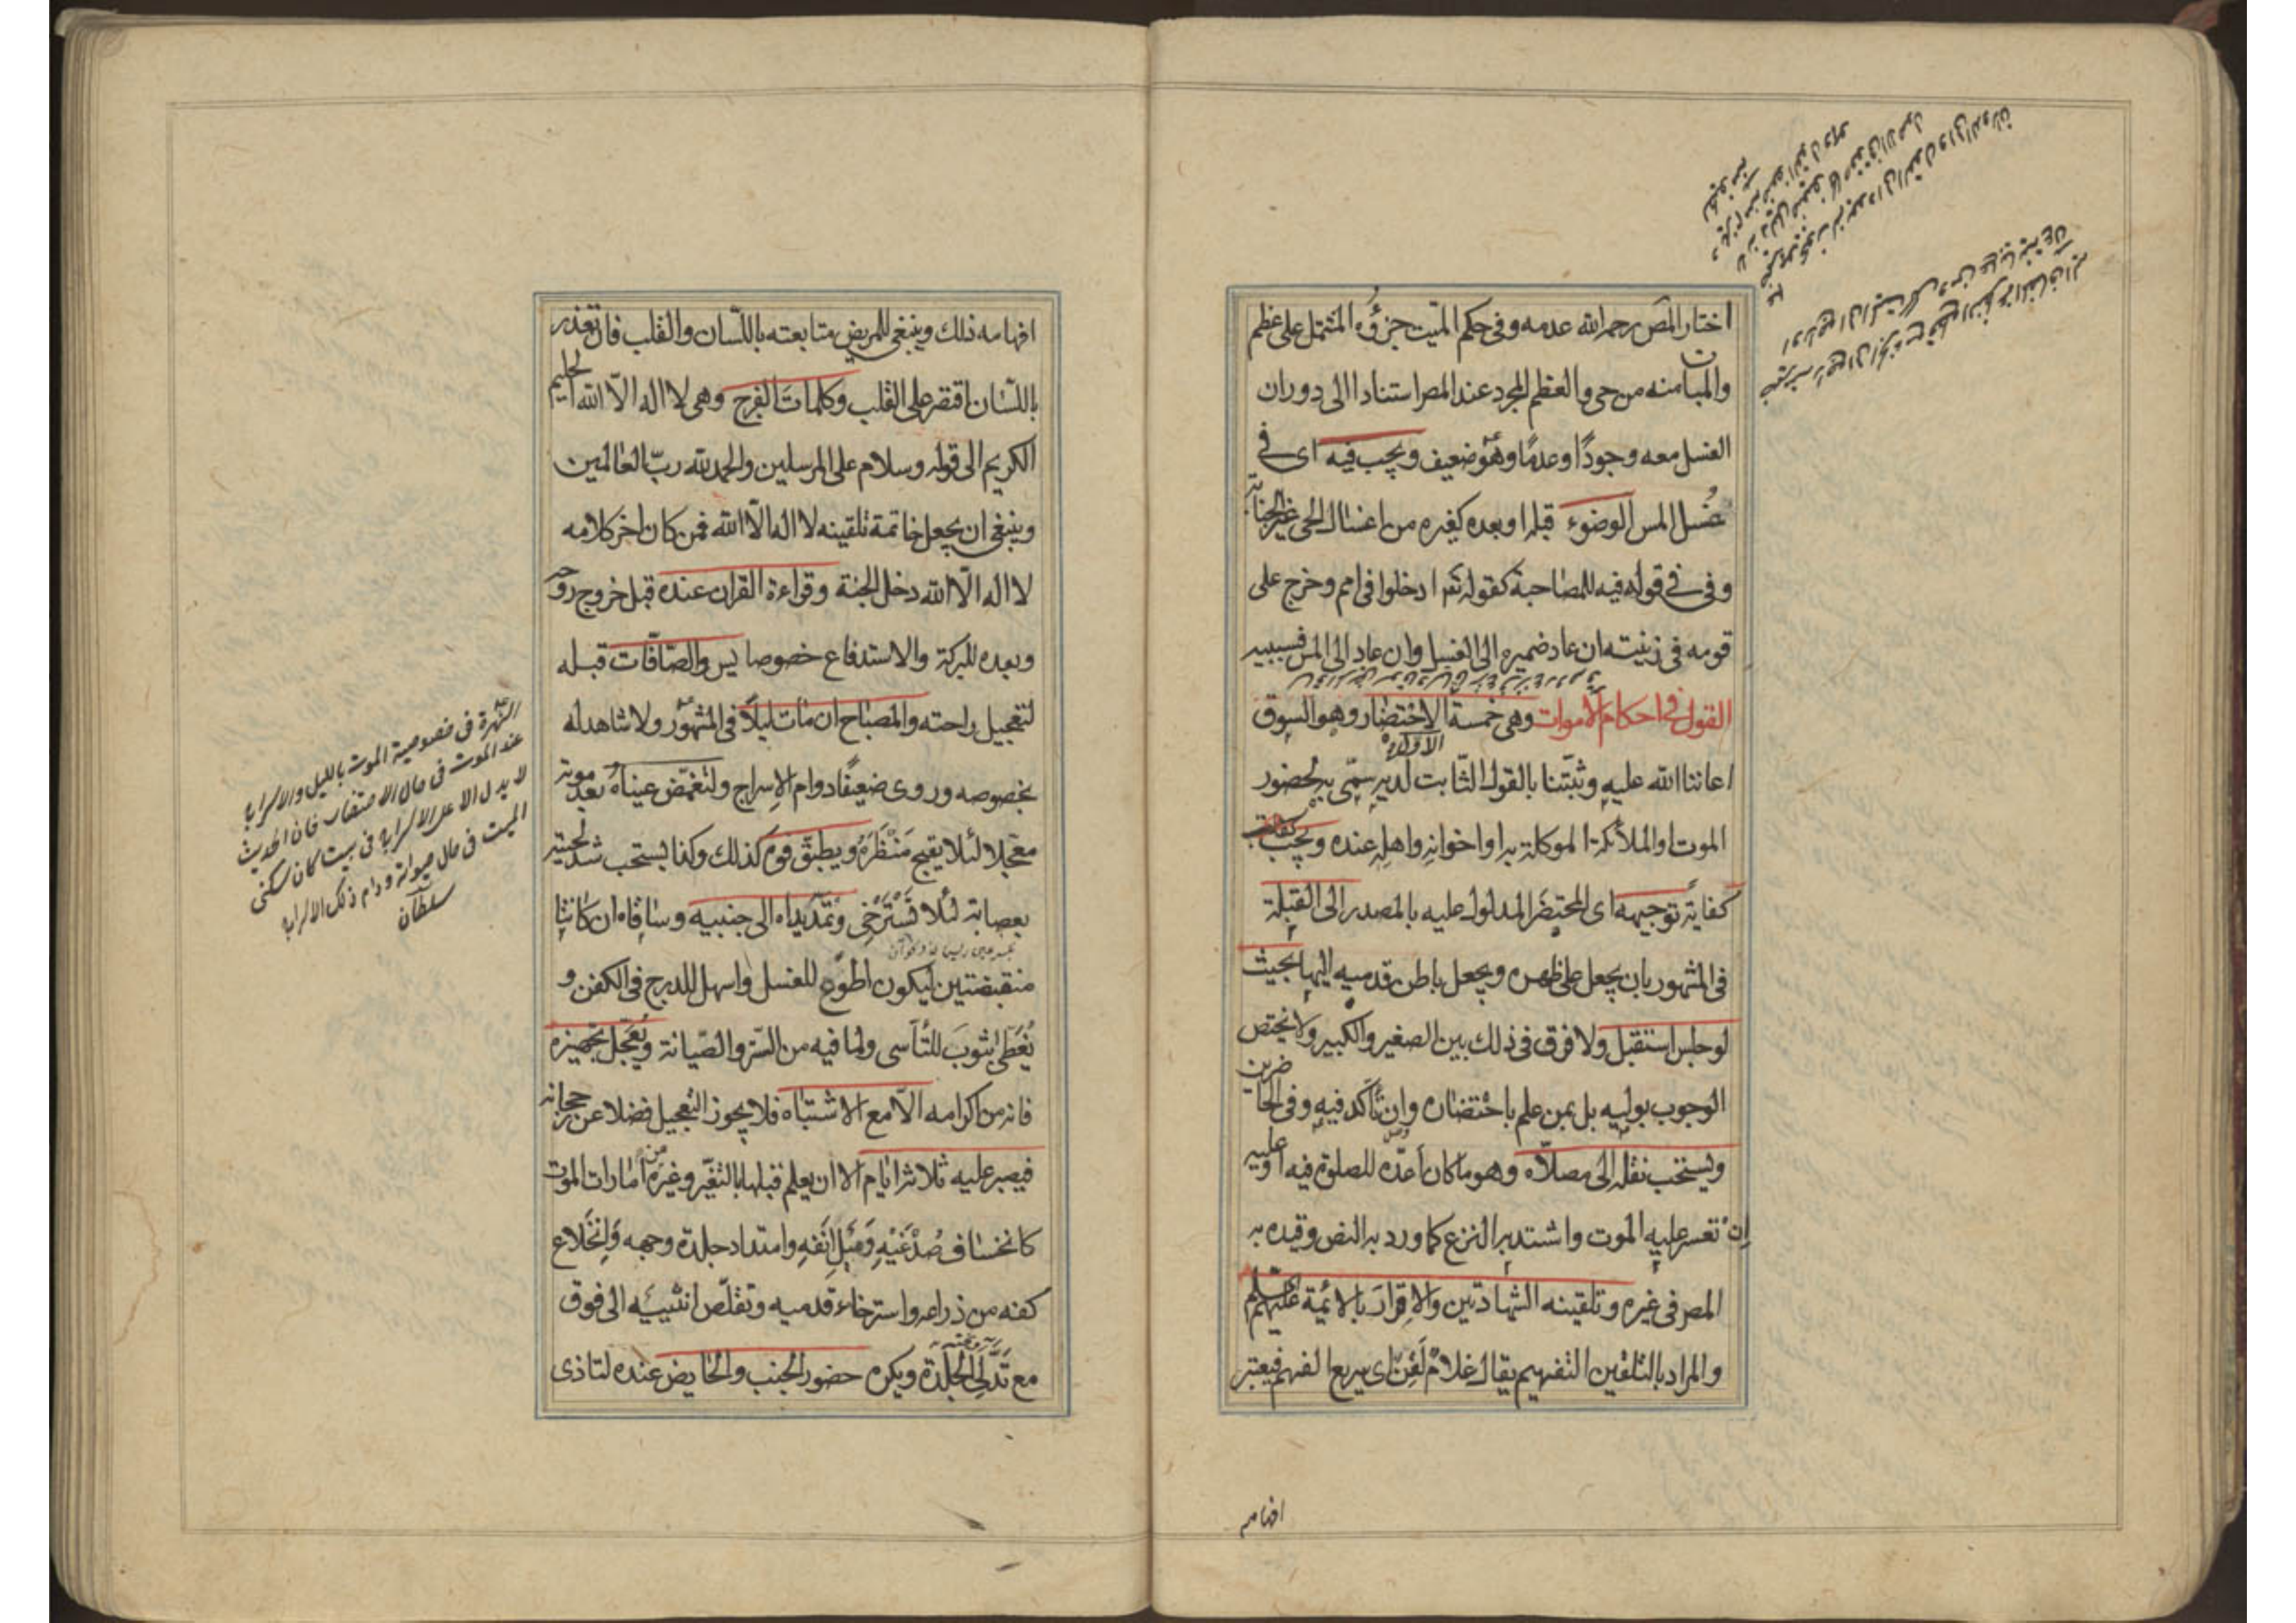 اختار المص رحمه الله عدمه وفى حكم الميت جزؤه المشتمل على عظم
والمبانة منه من حى والعظم المجرد عند المص استنادا الى دوران
الغسل معه وجودًا وعدمًا وهو ضعيف ويجب فيه اى فى
غُسل المس الوضوء قبله او بعده كغيره من اغسال الحى غير الجنابة
وفى فى قوله فيه للمصاحبة كقوله تعر ادخلوا فى امم وخرج على
قومه فى زينته ان عاد ضميره الى الغسل وان عاد الى المس فسببيه
القول فى احكام الاموات وهى خمسة الاحتضار وهو السوق
الاول
اعاننا الله عليه وثبّتنا بالقول الثّابت لديه سمّى به لحضور
الموت او الملائكة الموكلة به او اخوانه واهله عنده ويجب
كفاية توجيهه اى المحتضَر المدلول عليه بالمصدر الى القبلة
فى المشهور بان يجعل على ظهره ويجعل باطن قدميه اليها بحيث
لو جلس استقبل ولا فرق فى ذلك بين الصغير والكبير ولا يختص
الوجوب بوليه بل بمن علم باحتضاره وإن تأكد فيه وفى الحاضرين
ويستحب نقله الى مصلّاه وهو ما كان أعدّه للصلوة فيه او عليه
إن تعسر عليه الموت واشتد به النزع كما ورد به النص وقيده به
المص فى غيره وتلقينه الشهادتين والاقرار بالائمة عليهم
والمراد بالتلقين التفهيم يقال غلامٌ لَقِنٌ اى سريع الفهم فيعتبر
افهامه
افهامه ذلك وينبغى للمريض متابعته باللّسان والقلب فان تعذر
باللسان اقتصر على القلب وكلمات الفرج وهى لا اله الّا الله الحليم
الكريم الى قوله وسلام على المرسلين والحمد لله ربّ العالمين
وينبغى ان يجعل خاتمة تلقينه لا اله الّا الله فمن كان اخر كلامه
لا اله الّا الله دخل الجنة وقراءة القران عنده قبل خروج روحه
وبعده للبركة والاستدفاع خصوصا يس والصّافّات قبله
لتعجيل راحته والمصباح ان مات ليلاً فى المشهور ولا شاهد له
بخصوصه وروى ضعيفًا دوام الإسراج ولتغمّض عيناهُ بعد موته
معجّلا لئلا يقبح مَنْظَرُه ويطبق فوه كذلك وكذا يستحب شد لحييه
بعصابة لئلا تَسْتَرْخِى وتمدّ يداه الى جنبيه وساقاه ان كانتا
منقبضتين ليكون اطوع للغسل واسهل للدرج فى الكفن و
يُغَطّى بثوب للتّأسى ولما فيه من الستر والصّيانة ويُعَجّل تجهيزه
فانه من اكرامه الّا مع الاشتباه فلا يجوز التعجيل فضلا عن رجحانه
فيصبر عليه ثلاثة ايام الا ان يعلم قبلها بالتغيّر وغيره من أمارات الموت
كانخساف صُدْغَيْهِ وَمَيلِ اَنفهِ وامتداد جلدة وجهه وَانخَلاع
كفه من ذراعه واسترخاء قدميه وتقلّص انثييه الى فوق
مع تَدَلّى الجلدة ويكره حضور الجنب والحايض عنده لتاذى
الشهرة فى خصوصية الموت بالليل والاسراج
عند الموت فى حال الاحتضار فان الحديث
لا يدل الا على الاسراج فى بيت كان يسكنى
الميت فى حال حيوته ودام ذلك الاسراج
سلطان